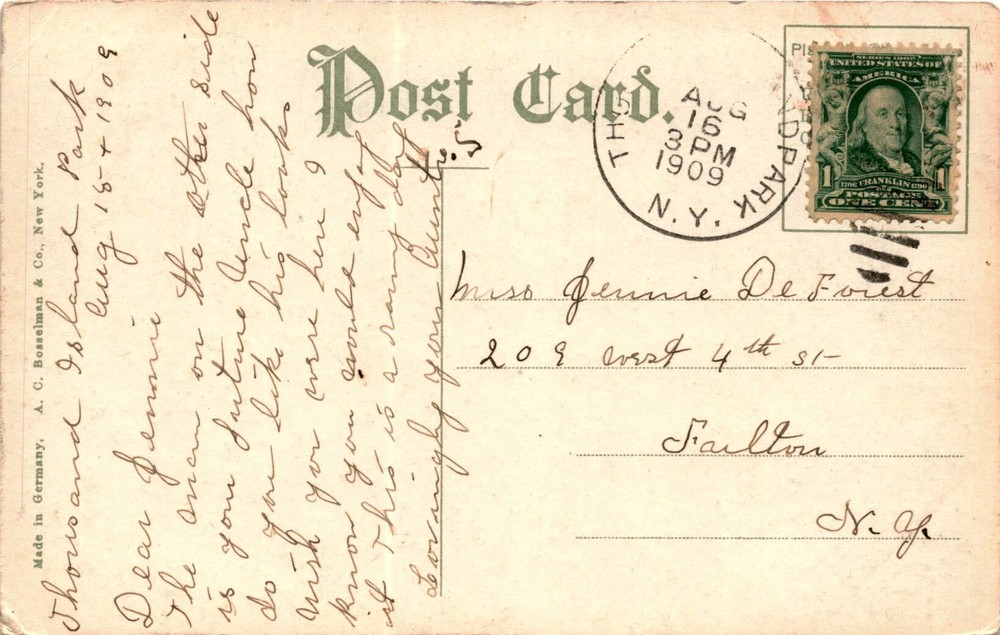 Post Card.
Made in Germany. A. C. Bosselman & Co., New York.
Thousand Island Park
Aug 15th 1909
Dear Jennie
The man on the other side
is your future Uncle how
do you like his looks
wish you were here I
know you would enjoy
it this is a rainy day
Lovingly your
AUG
16
3 PM
1909
N.Y.
SERIES 1902
UNITED STATES OF
AMERICA
1706 FRANKLIN 1790
1 POSTAGE 1
ONE CENT
Miss Jennie De Forest
209 West 4th st
Faulton
N. Y.